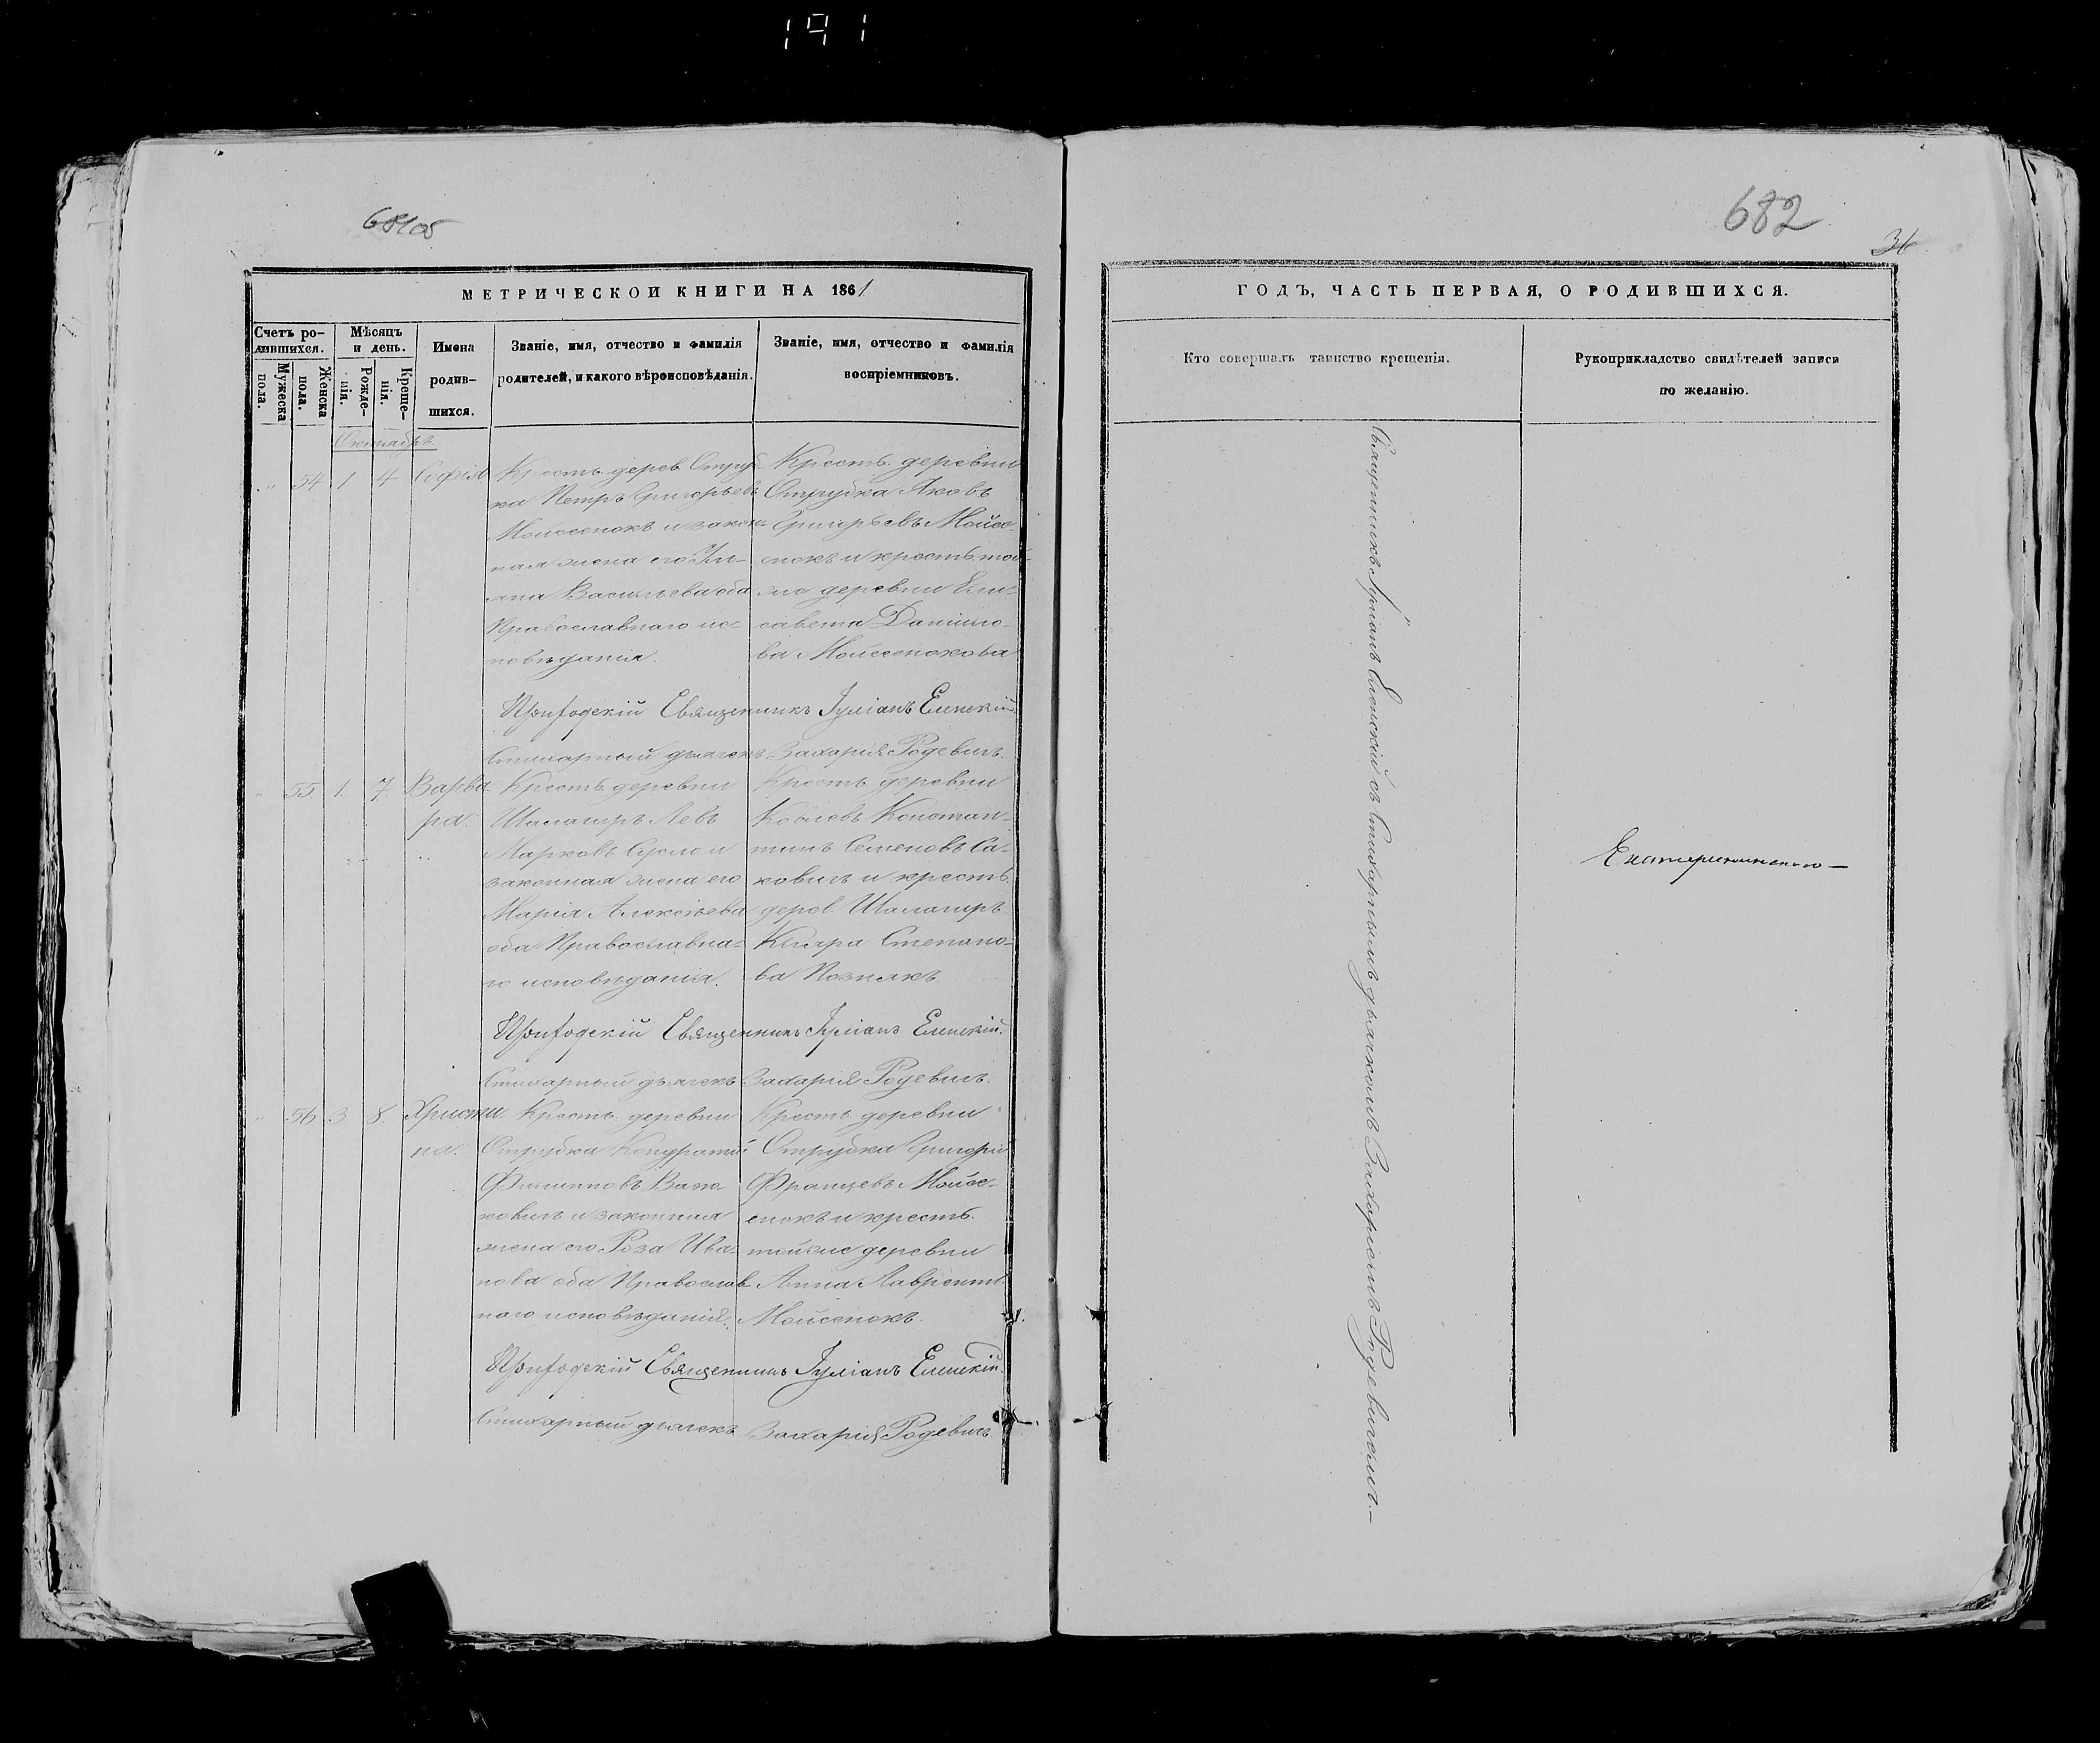 191
681об
МЕТРИЧЕСКОЙ КНИГИ НА 1861
Счетъ ро-
дившихся.
Мѣсяцъ
и день.
Мужеска
пола.
Женска
пола.
Рожде-
нія.
Креще-
нія.
Имена
родив-
шихся.
Званіе, имя, отчество и фамилія
родителей, и какого вѣроисповѣданія.
Званіе, имя, отчество и фамилія
воспріемниковъ.
Октябрь
" 54 1 4 Софія
Крестъ. дерев. Отруб-
ка Петръ Григорьевъ
Мойсеенокъ и закон-
ная жена его Уль-
яна Васильева оба
Православнаго ис-
повѣданія.
Крестъ. деревни
Отрубка Яковъ
Григорьевъ Мойсе-
енокъ и крестъ. той-
же деревни Ели-
савета Данило-
ва Мойсеенокова
Приходскій Священникъ Іуліанъ Еленскій.
Стихарный дьячекъ Захарія Родевичъ.
" 55 1. 7. Варва-
ра.
Крестъ. деревни
Шалагиръ Левъ
Марковъ Сусло и
законная жена его
Марія Алексѣева
оба Православна-
го исповѣданія.
Крестъ. деревни
Ковлевъ Констан-
тинъ Семеновъ Са-
ковичъ и крестъ.
дерев. Шалагиръ
Кіира Степано-
ва Познякъ.
Приходскій Священникъ Іуліанъ Еленскій.
Стихарный дьячекъ Захарія Родевичъ.
" 56 3 8. Христи-
на.
Крестъ. деревни
Отрубка Кондратій
Филипповъ Васю-
ковичъ и законная
жена его Роза Ива-
нова оба Православ-
наго исповѣданія.
Крестъ. деревни
Отрубка Григорій
Францевъ Мойсе-
енокъ и крестъ.
тойже деревни
Анна Лаврентъ.
Мойсенокъ.
Приходскій Священникъ Іуліанъ Еленскій.
Стихарный дьячекъ Захарія Родевичъ.
682
31
ГОДЪ, ЧАСТЬ ПЕРВАЯ, О РОДИВШИХСЯ.
Кто совершалъ таинство крещенія.
Рукоприкладство свидѣтелей записи
по желанію.
Священникъ Іуліанъ Еленскій съ стихарнымъ дьячкомъ Захаріемъ Родевичемъ.—